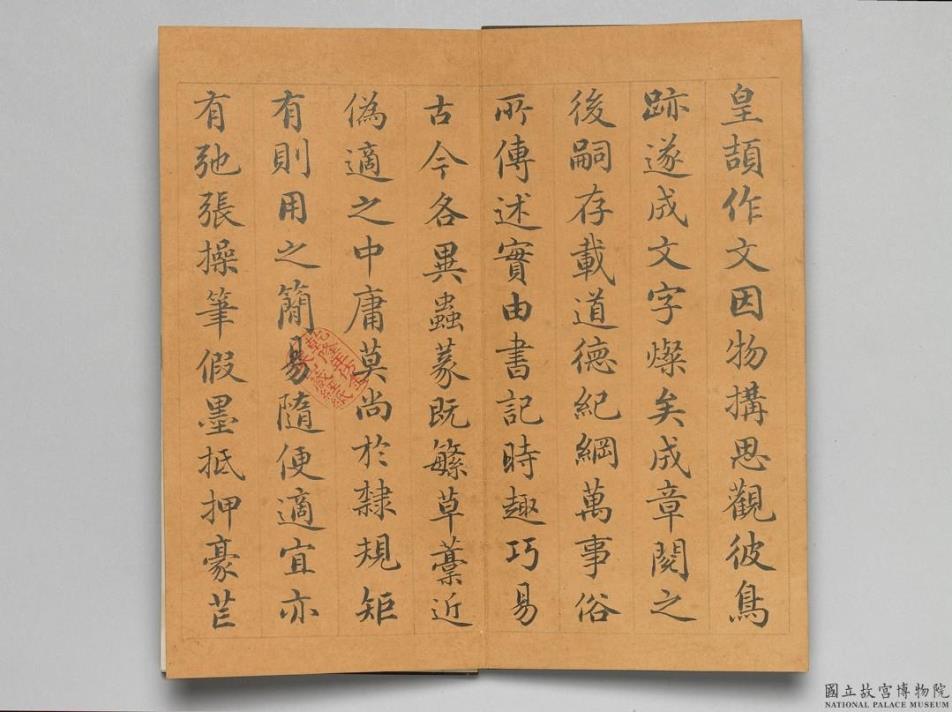 皇頡作文因物搆思觀彼鳥
跡遂成文字燦矣成章閱之
後嗣存載道德紀綱萬事俗
所傳述實由書記時趣巧易
古今各異蟲篆既繁草藁近
偽適之中庸莫尚於隸規矩
有則用之簡易隨便適宜亦
有弛張操筆假墨抵押豪芒
乾隆年仿金
粟山藏經紙
國立故宮博物院
NATIONAL PALACE MUSEUM